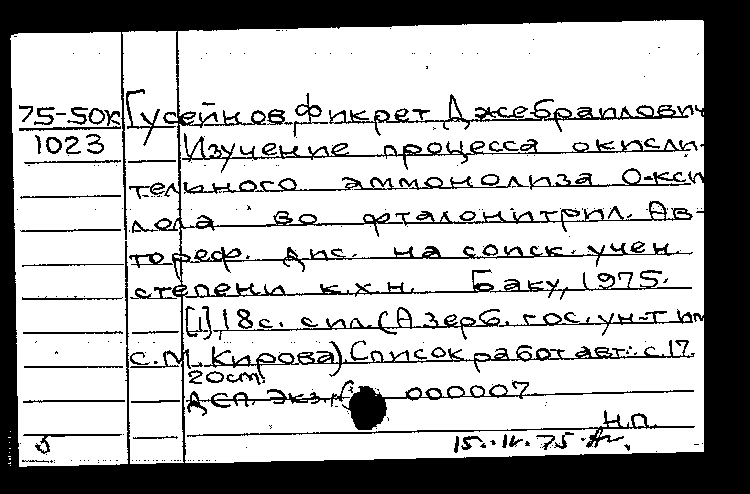 75-50к Гусейнов Фикрет Джебраилович
1023 Изучение процесса окисли-
тельного аммонолиза О-кси
лола во фталонитрил. Ав-
тореф. дис. на соиск. учен.
степени к.х.н. Баку, 1975.
[1], 18 с. с ил. (Азерб. гос. ун-т им
С.М. Кирова). Список работ авт.: с. 17.
20 cm.
ДЕП. Экз. 000007.
Н.П.
15. 75